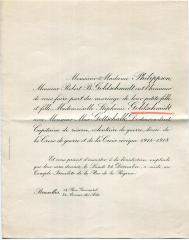 Monsieur & Madame Philippson,
Monsieur Robert B. Goldschmidt ont l'honneur
de vous faire part du mariage de leur petite fille
et fille, Mademoiselle Stéphanie Goldschmidt
avec Monsieur Max Gottschalk,
Capitaine de réserve, volontaire de guerre, décoré de
la Croix de guerre et de la Croix civique 1914-1918.
Et vous prient d'assister à la bénédiction nuptiale
qui leur sera donnée le Lundi 22 Décembre, à midi au
Temple Israélite de la Rue de la Régence.
Bruxelles,